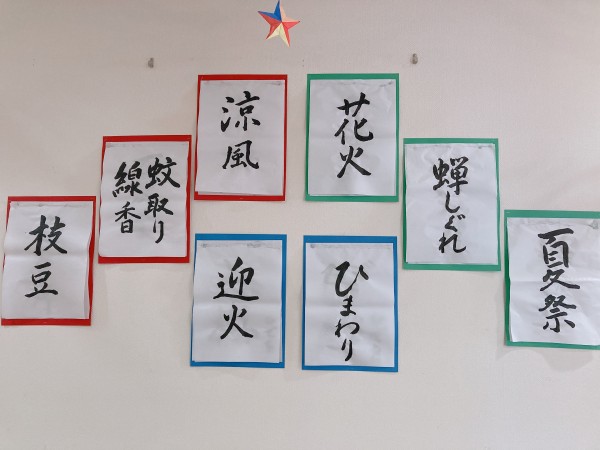 涼風
花火
蚊取り
線香
蝉しぐれ
枝豆
夏祭
迎火
ひまわり